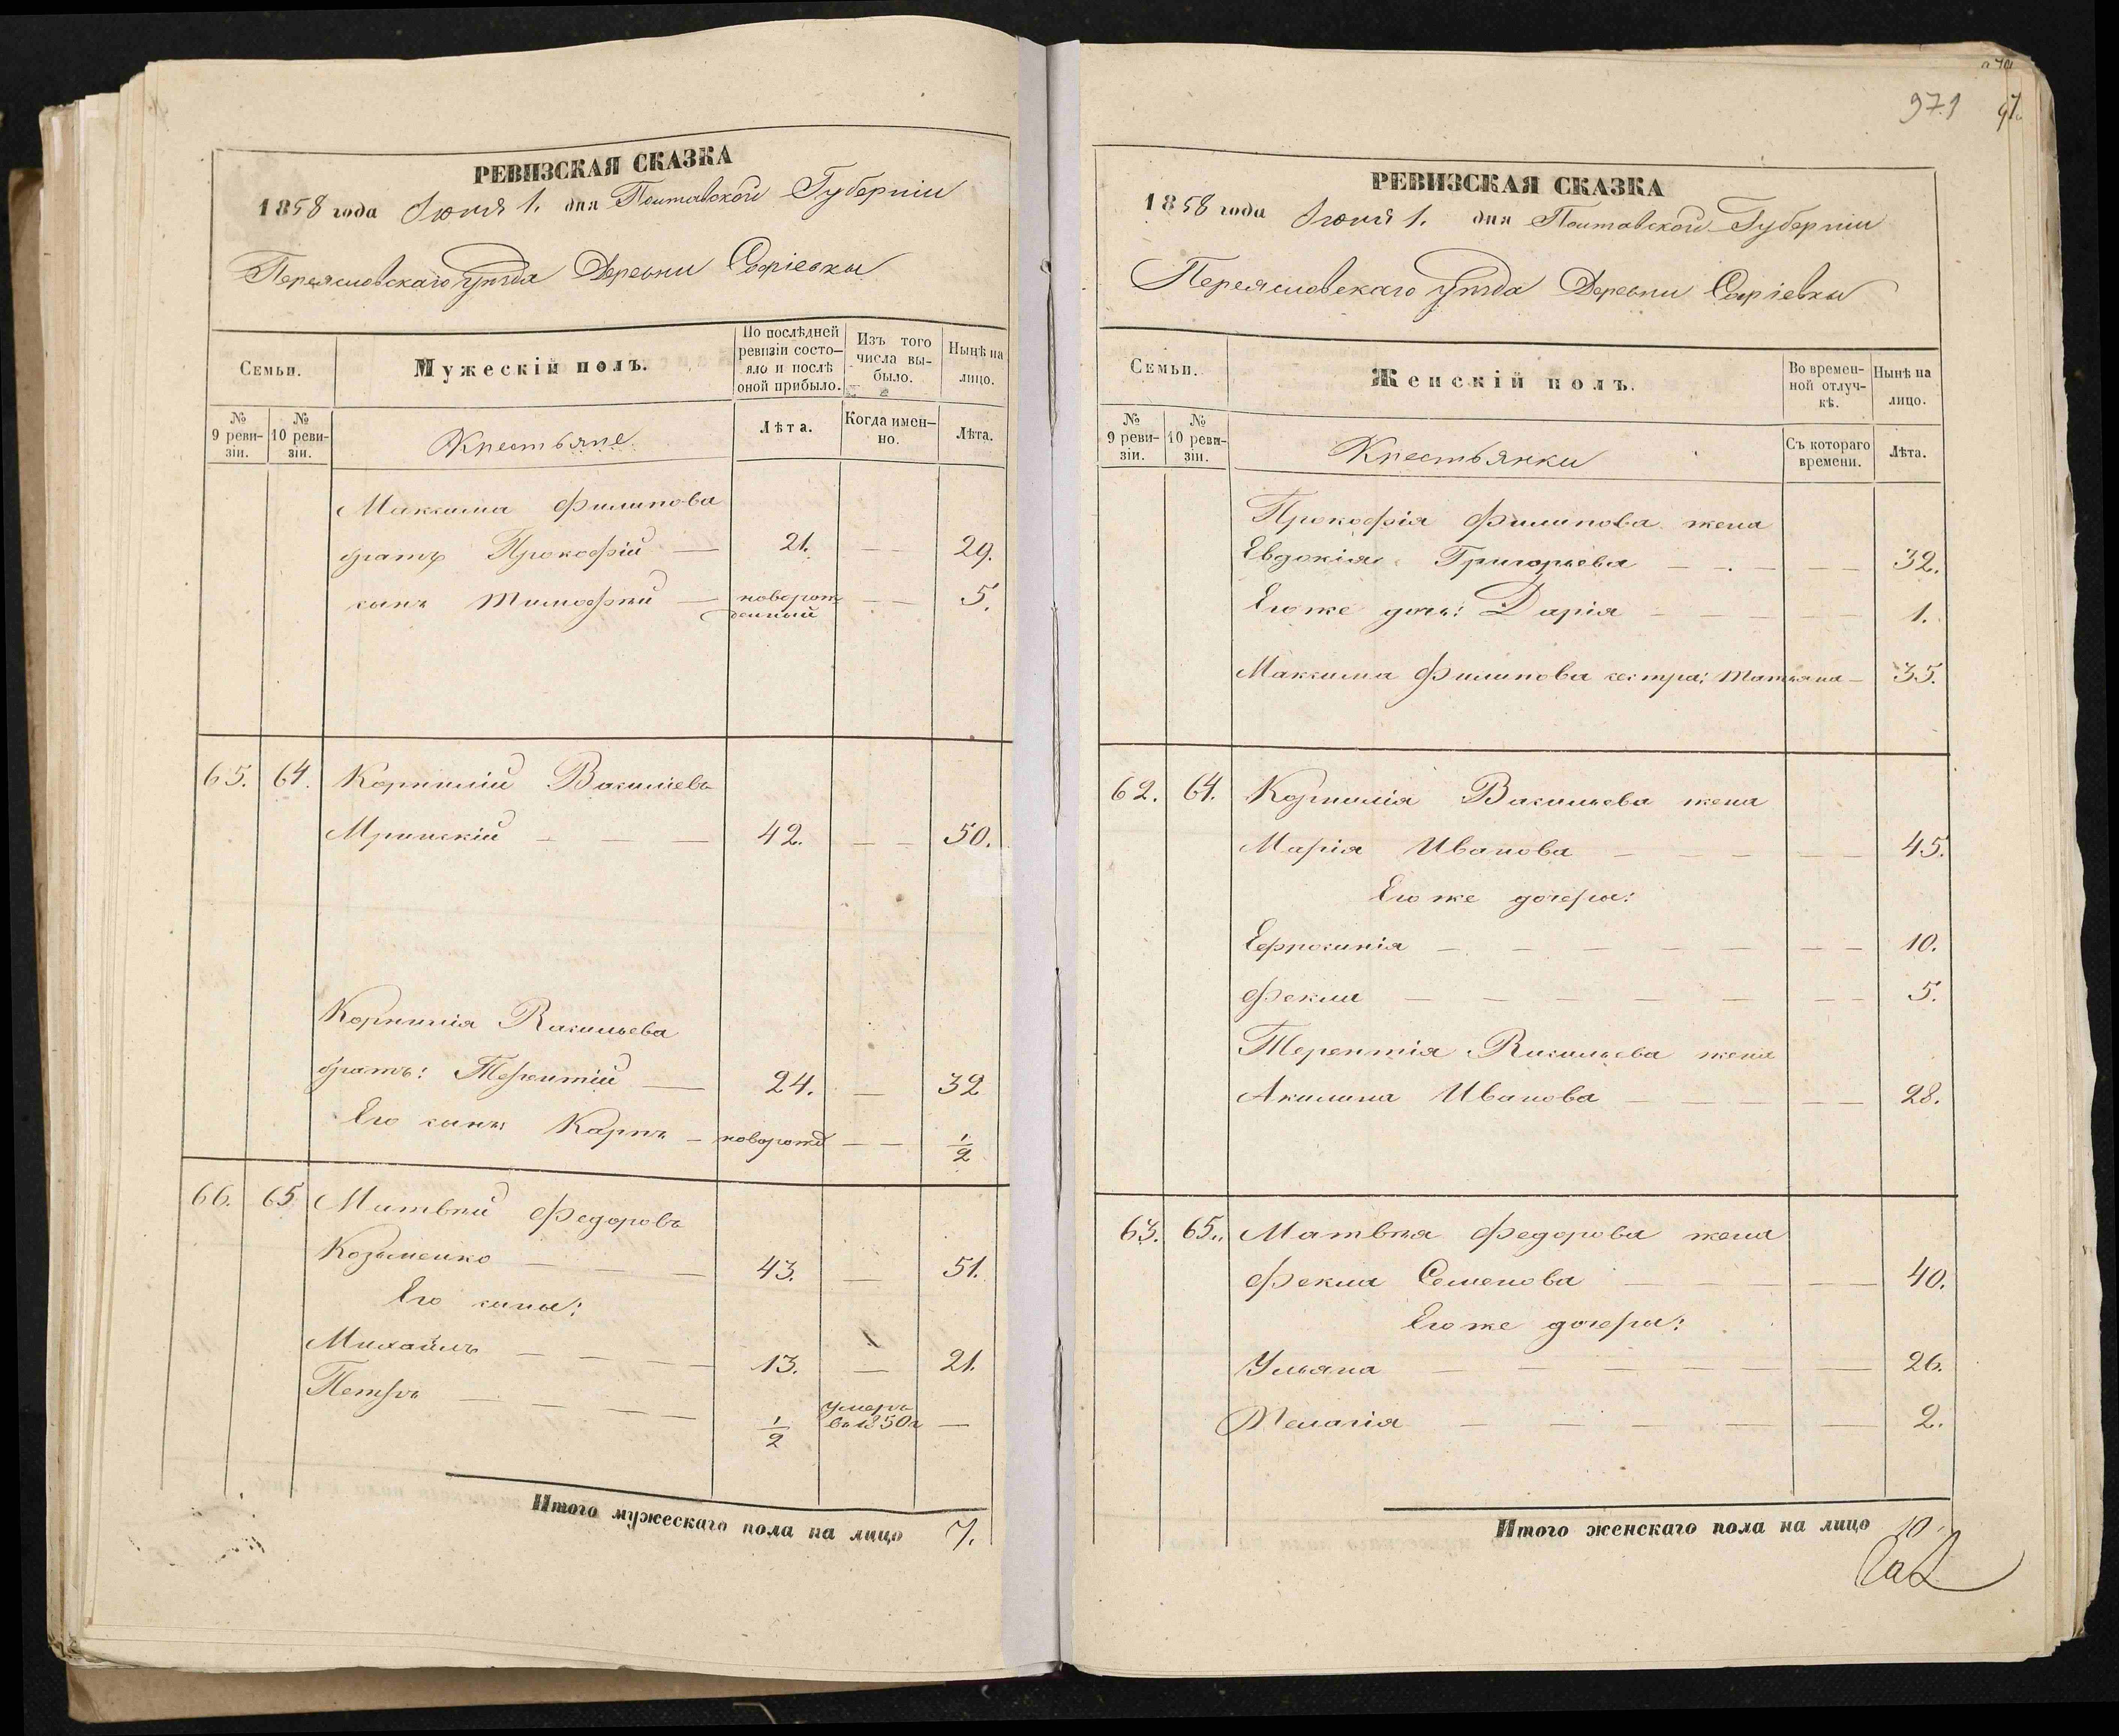 РЕВИЗСКАЯ СКАЗКА
1858 года Іюня 1. дня Полтавской Губерніи
Переяславскаго уѣзда Деревни Софіевки
Семьи.
Мужескій полъ.
По послѣдней ревизіи состо-
яло и послѣ оной прибыло.
Изъ того числа вы-
было.
Нынѣ на лицо.
№ 9 реви-
зіи.
№ 10 реви-
зіи.
Крестьяне
Лѣта.
Когда имен-
но.
Лѣта.
Максима Филипова
братъ Прокофій — 21. — — 29.
сынъ Тимофѣй — новорож
денный — — 5.
65. 64. Корнилій Василіевъ
Мринскій — — — 42. — — 50.
Корнилія Васильева
братъ: Терентій — 24. — 32
Его сынъ Карпъ — новорожд — — 1/2
66. 65 Матвѣй Федоровъ
Козьменко — — — 43. — 51.
Его сыны:
Михаилъ — — — — 13. — 21.
Петръ — — — — 1/2 умеръ
въ 1850г —
Итого мужескаго пола на лицо 7.
971
РЕВИЗСКАЯ СКАЗКА
1858 года Іюня 1. дня Полтавской Губерніи
Переяславскаго уѣзда Деревни Софіевки
Семьи.
Женскій полъ.
Во времен-
ной отлуч-
кѣ.
Нынѣ на лицо.
№ 9 реви-
зіи.
№ 10 реви-
зіи.
Крестьянки
Съ котораго времени.
Лѣта.
Прокофія Филипова жена
Евдокія Григорьева — — — — — 32.
Его же дочь: Дарія — — — — — — 1.
Максима Филипова сестра: Татьяна — 35.
62. 64. Корнилія Васильева жена
Марія Иванова — — — — — — 45.
Его же дочери:
Ефросинія — — — — — — — — 10.
Фекла — — — — — — — — 5.
Терентія Васильева жена
Акилина Иванова — — — — — — 28.
63. 65. Матвѣя Федорова жена
Фекла Семенова — — — — 40.
Его же дочери:
Ульяна — — — — — — 26.
Пелагія — — — — — — 2.
Итого женскаго пола на лицо 10.